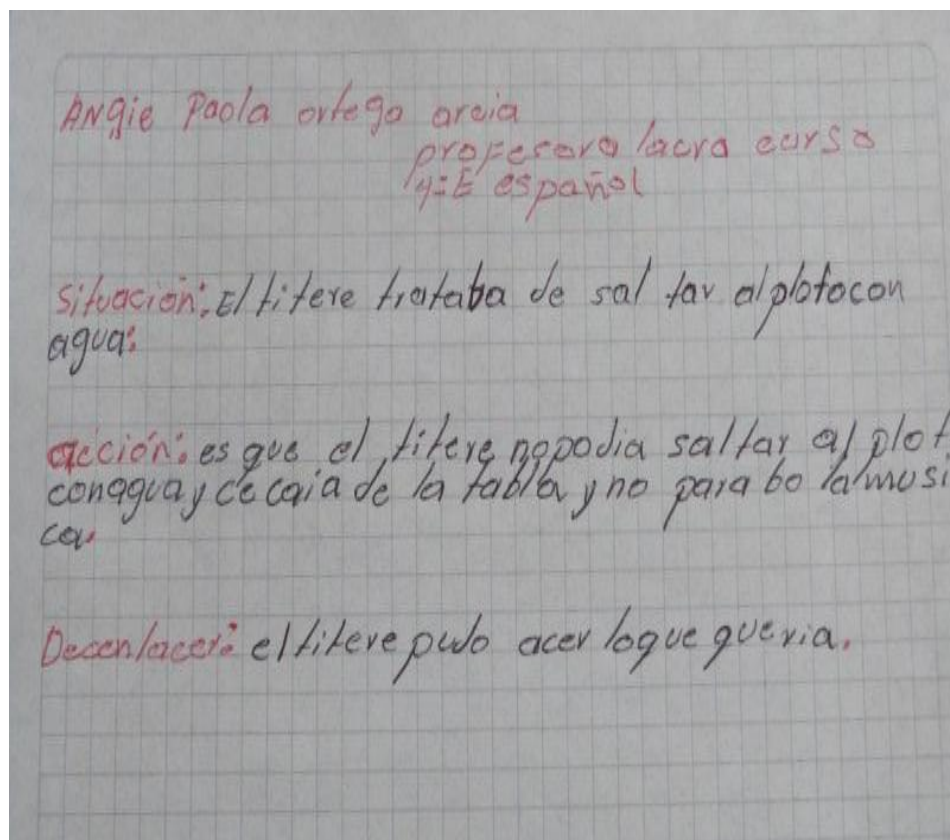 ANgie Paola ortega arcia
profesora lacra curso
4:E español
situación: El titere trataba de sal tar al platocon
agua:
acción: es que el titere nopodia saltar al plat
conagua y ce caia de la tabla y no paraba lamusi
ca.
Decenlacer: el titere pudo acer loque queria.